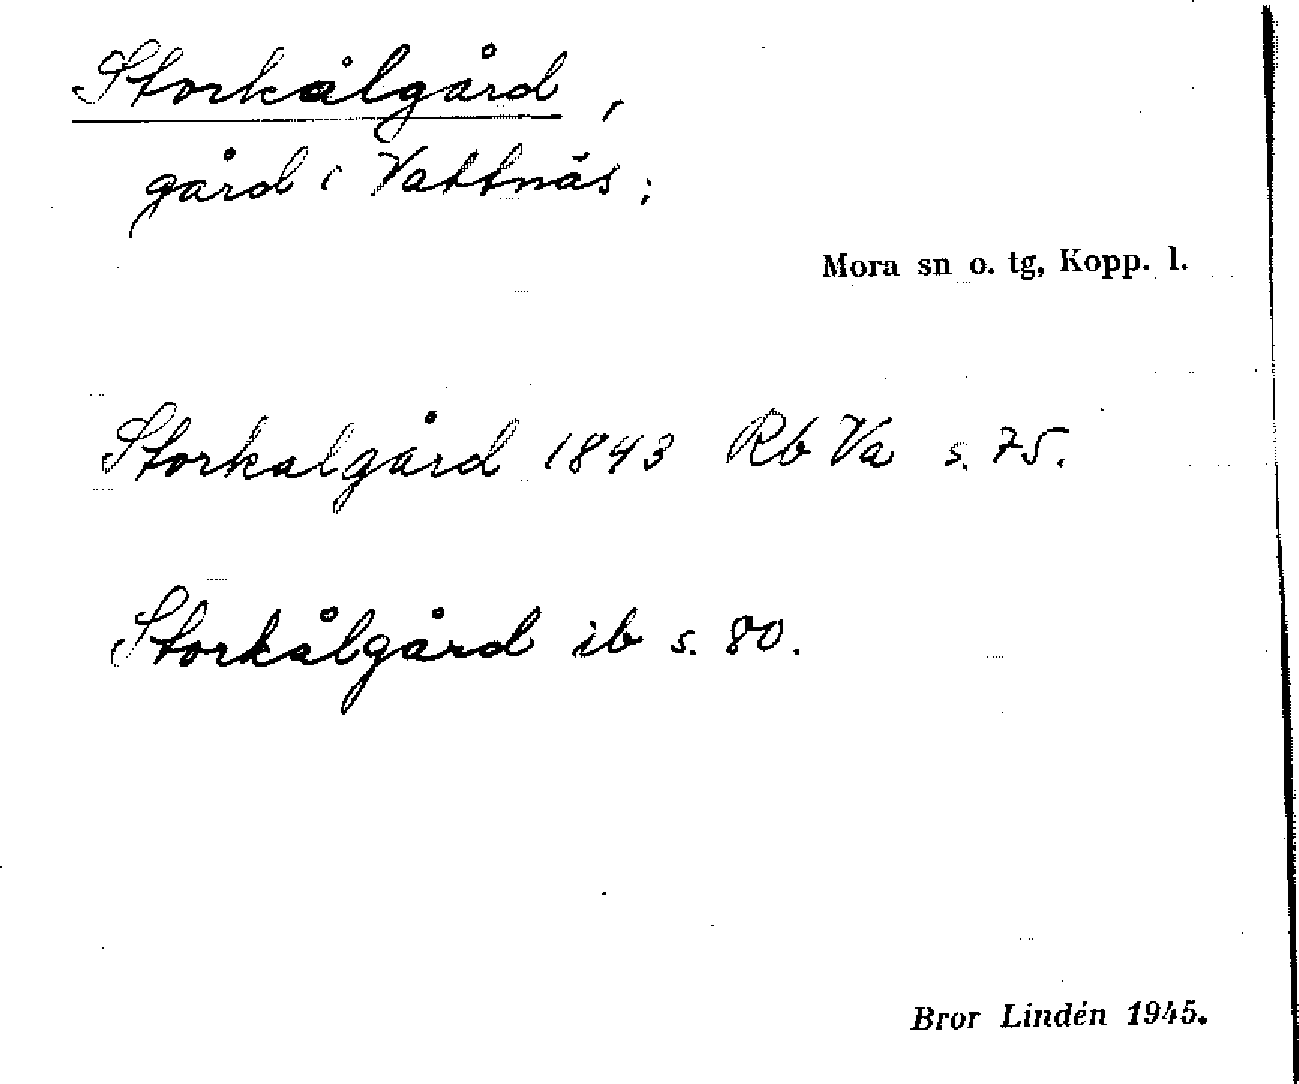 Storkålgård,
gård i Vattnäs;
Mora sn o. tg, Kopp. l.
Storkalgård 1843 Rb Va s. 75.
Storkålgård ib s. 80.
Bror Lindén 1945.